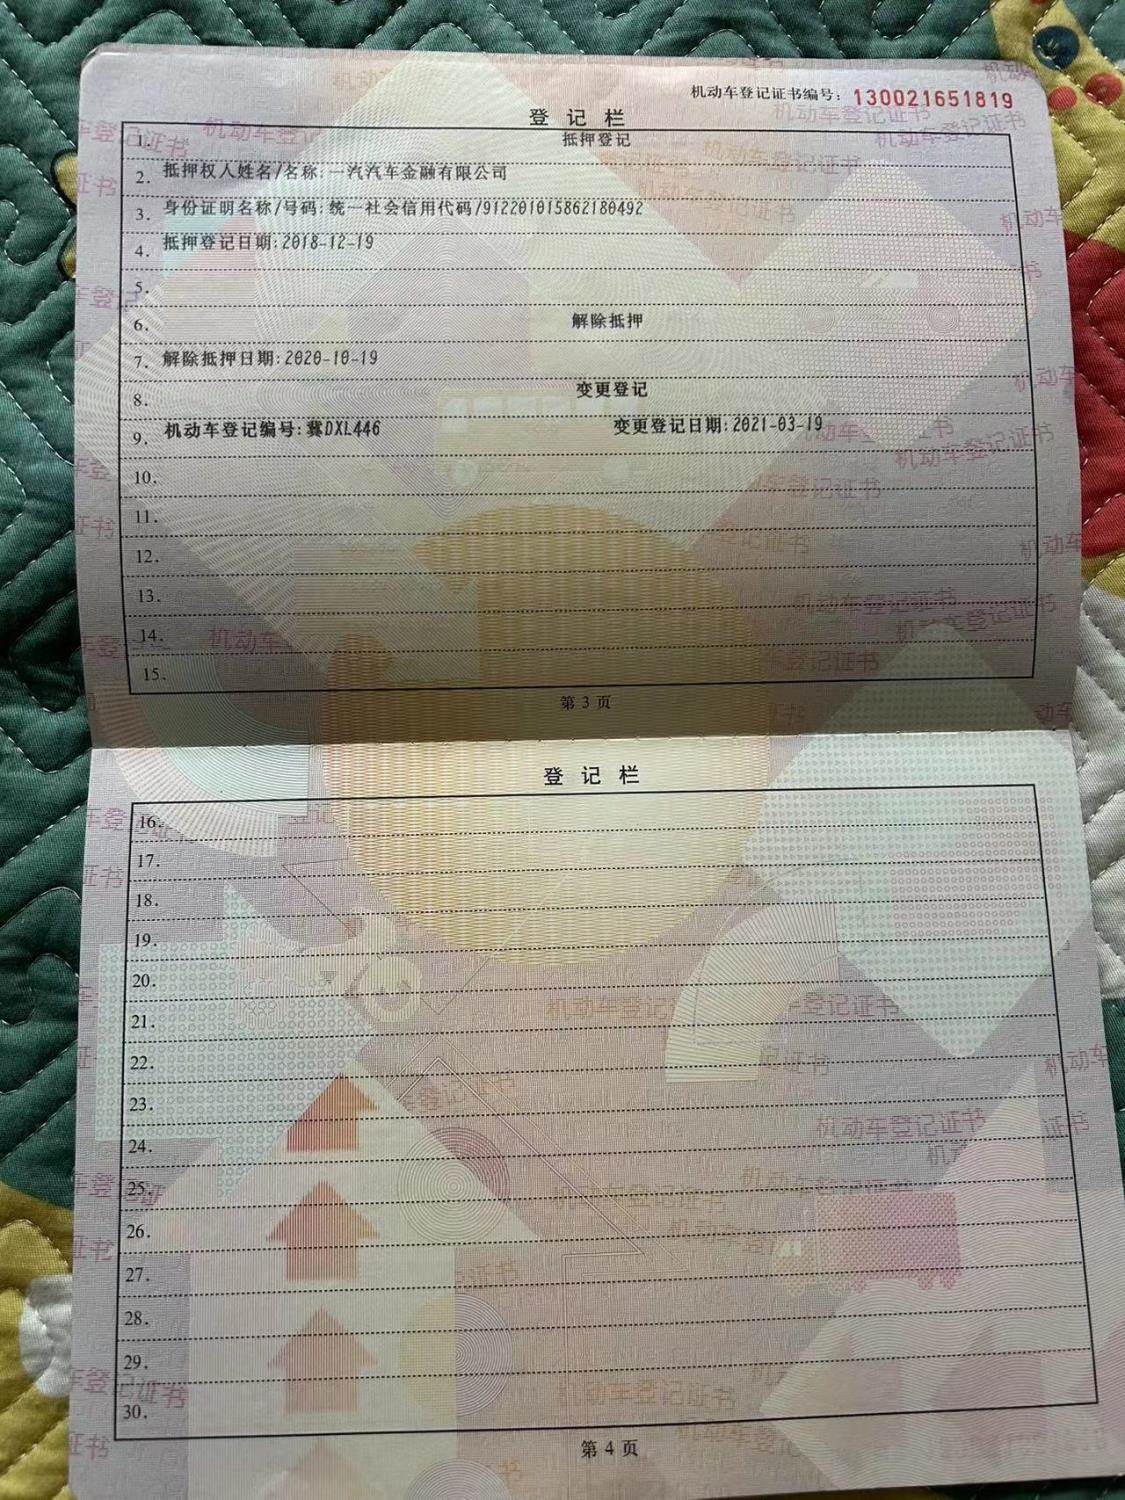 机动车登记证书编号：130021651819
登 记 栏
1. 抵押登记
2. 抵押权人姓名/名称：一汽汽车金融有限公司
3. 身份证明名称/号码：统一社会信用代码/912201015862180492
4. 抵押登记日期：2018-12-19
5.
6. 解除抵押
7. 解除抵押日期：2020-10-19
8. 变更登记
9. 机动车登记编号：冀DXL446 变更登记日期：2021-03-19
10.
11.
12.
13.
14.
15.
第 3 页
登 记 栏
16.
17.
18.
19.
20.
21.
22.
23.
24.
25.
26.
27.
28.
29.
30.
第 4 页